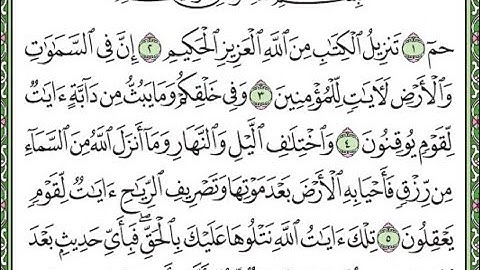 حمٓ ١ تَنزِيلُ ٱلْكِتَٰبِ مِنَ ٱللَّهِ ٱلْعَزِيزِ ٱلْحَكِيمِ ٢ إِنَّ فِى ٱلسَّمَٰوَٰتِ
وَٱلْأَرْضِ لَءَايَٰتٍ لِّلْمُؤْمِنِينَ ٣ وَفِى خَلْقِكُمْ وَمَا يَبُثُّ مِن دَآبَّةٍ ءَايَٰتٌ
لِّقَوْمٍ يُوقِنُونَ ٤ وَٱخْتِلَٰفِ ٱلَّيْلِ وَٱلنَّهَارِ وَمَآ أَنزَلَ ٱللَّهُ مِنَ ٱلسَّمَآءِ
مِن رِّزْقٍ فَأَحْيَا بِهِ ٱلْأَرْضَ بَعْدَ مَوْتِهَا وَتَصْرِيفِ ٱلرِّيَٰحِ ءَايَٰتٌ لِّقَوْمٍ
يَعْقِلُونَ ٥ تِلْكَ ءَايَٰتُ ٱللَّهِ نَتْلُوهَا عَلَيْكَ بِٱلْحَقِّ ۖ فَبِأَىِّ حَدِيثٍۭ بَعْدَ